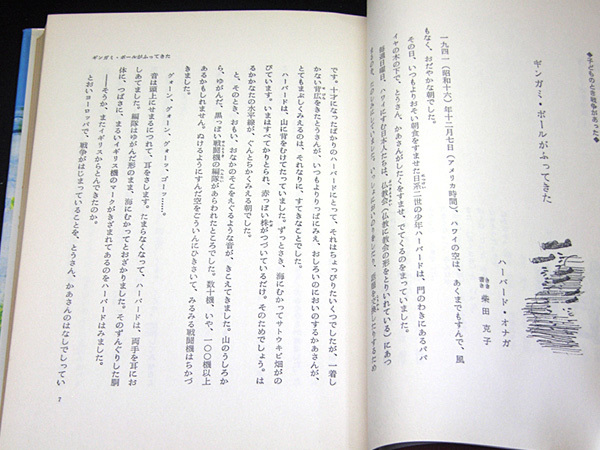 ◆子どものとき戦争があった◆
ギンガミ・ボールがふってきた
ハーバード・オナガ
柴田克子
一九四一(昭和十六)年十二月七日(アメリカ時間)、ハワイの空は、あくまでもすんで、風
もなく、おだやかな朝でした。
その日、いつもよりおそい朝食をすませた日系二世の少年ハーバードは、門のわきにあるパパ
イヤの木の下で、とうさん、かあさんがしたくをすませ、でてくるのをまっていました。
毎週日曜日、ハワイにすむ日本人たちは、仏教会(仏教に教会の形をとりいれている)にあつ
です。十才になったばかりのハーバードにとって、それはちょっぴりたいくつでしたが、一着し
かない背広をきたとうさんが、いつもよりりっぱにみえ、おしろいのにおいのするかあさんが、
とてもまぶしくみえるのは、それなりに、すてきなことでした。
ハーバードは、山に背をむけてたっていました。ずっとさき、海にむかってサトウキビ畑がの
びています。いまはすべてかりとられ、赤っぽい株がつづいているだけ。そのためでしょう。は
るかかなたの水平線が、ぐんとちかくみえる朝でした。
と、そのとき、おもい、おなかのそこをえぐるような音が、きこえてきました。山のうしろか
ら、ゆがんだ、黒っぽい戦闘機の編隊があらわれたところでした。数十機、いや、一〇〇機以上
あるかもしれません。ぬけるようにすんだ空をごういんにひきさいて、みるみる戦闘機はちかづ
グォーン、グォーン、グォッ、ゴーッ……。
音は頭上にせまるにつれて、耳をさします。たまらなくなって、ハーバードは、両手を耳にお
しあてました。編隊はゆがんだ形のまま、海にむかってとおざかりました。そのずんぐりした胴
体に、つばさに、まるいイギリス機のマークがきざまれてあるのをハーバードはみました。
──そうか、またイギリスからとんできたのか。
とおいヨーロッパで、戦争がはじまっていることを、とうさん、かあさんのはなしでしってい
ギンガミ・ボールがふってきた
7